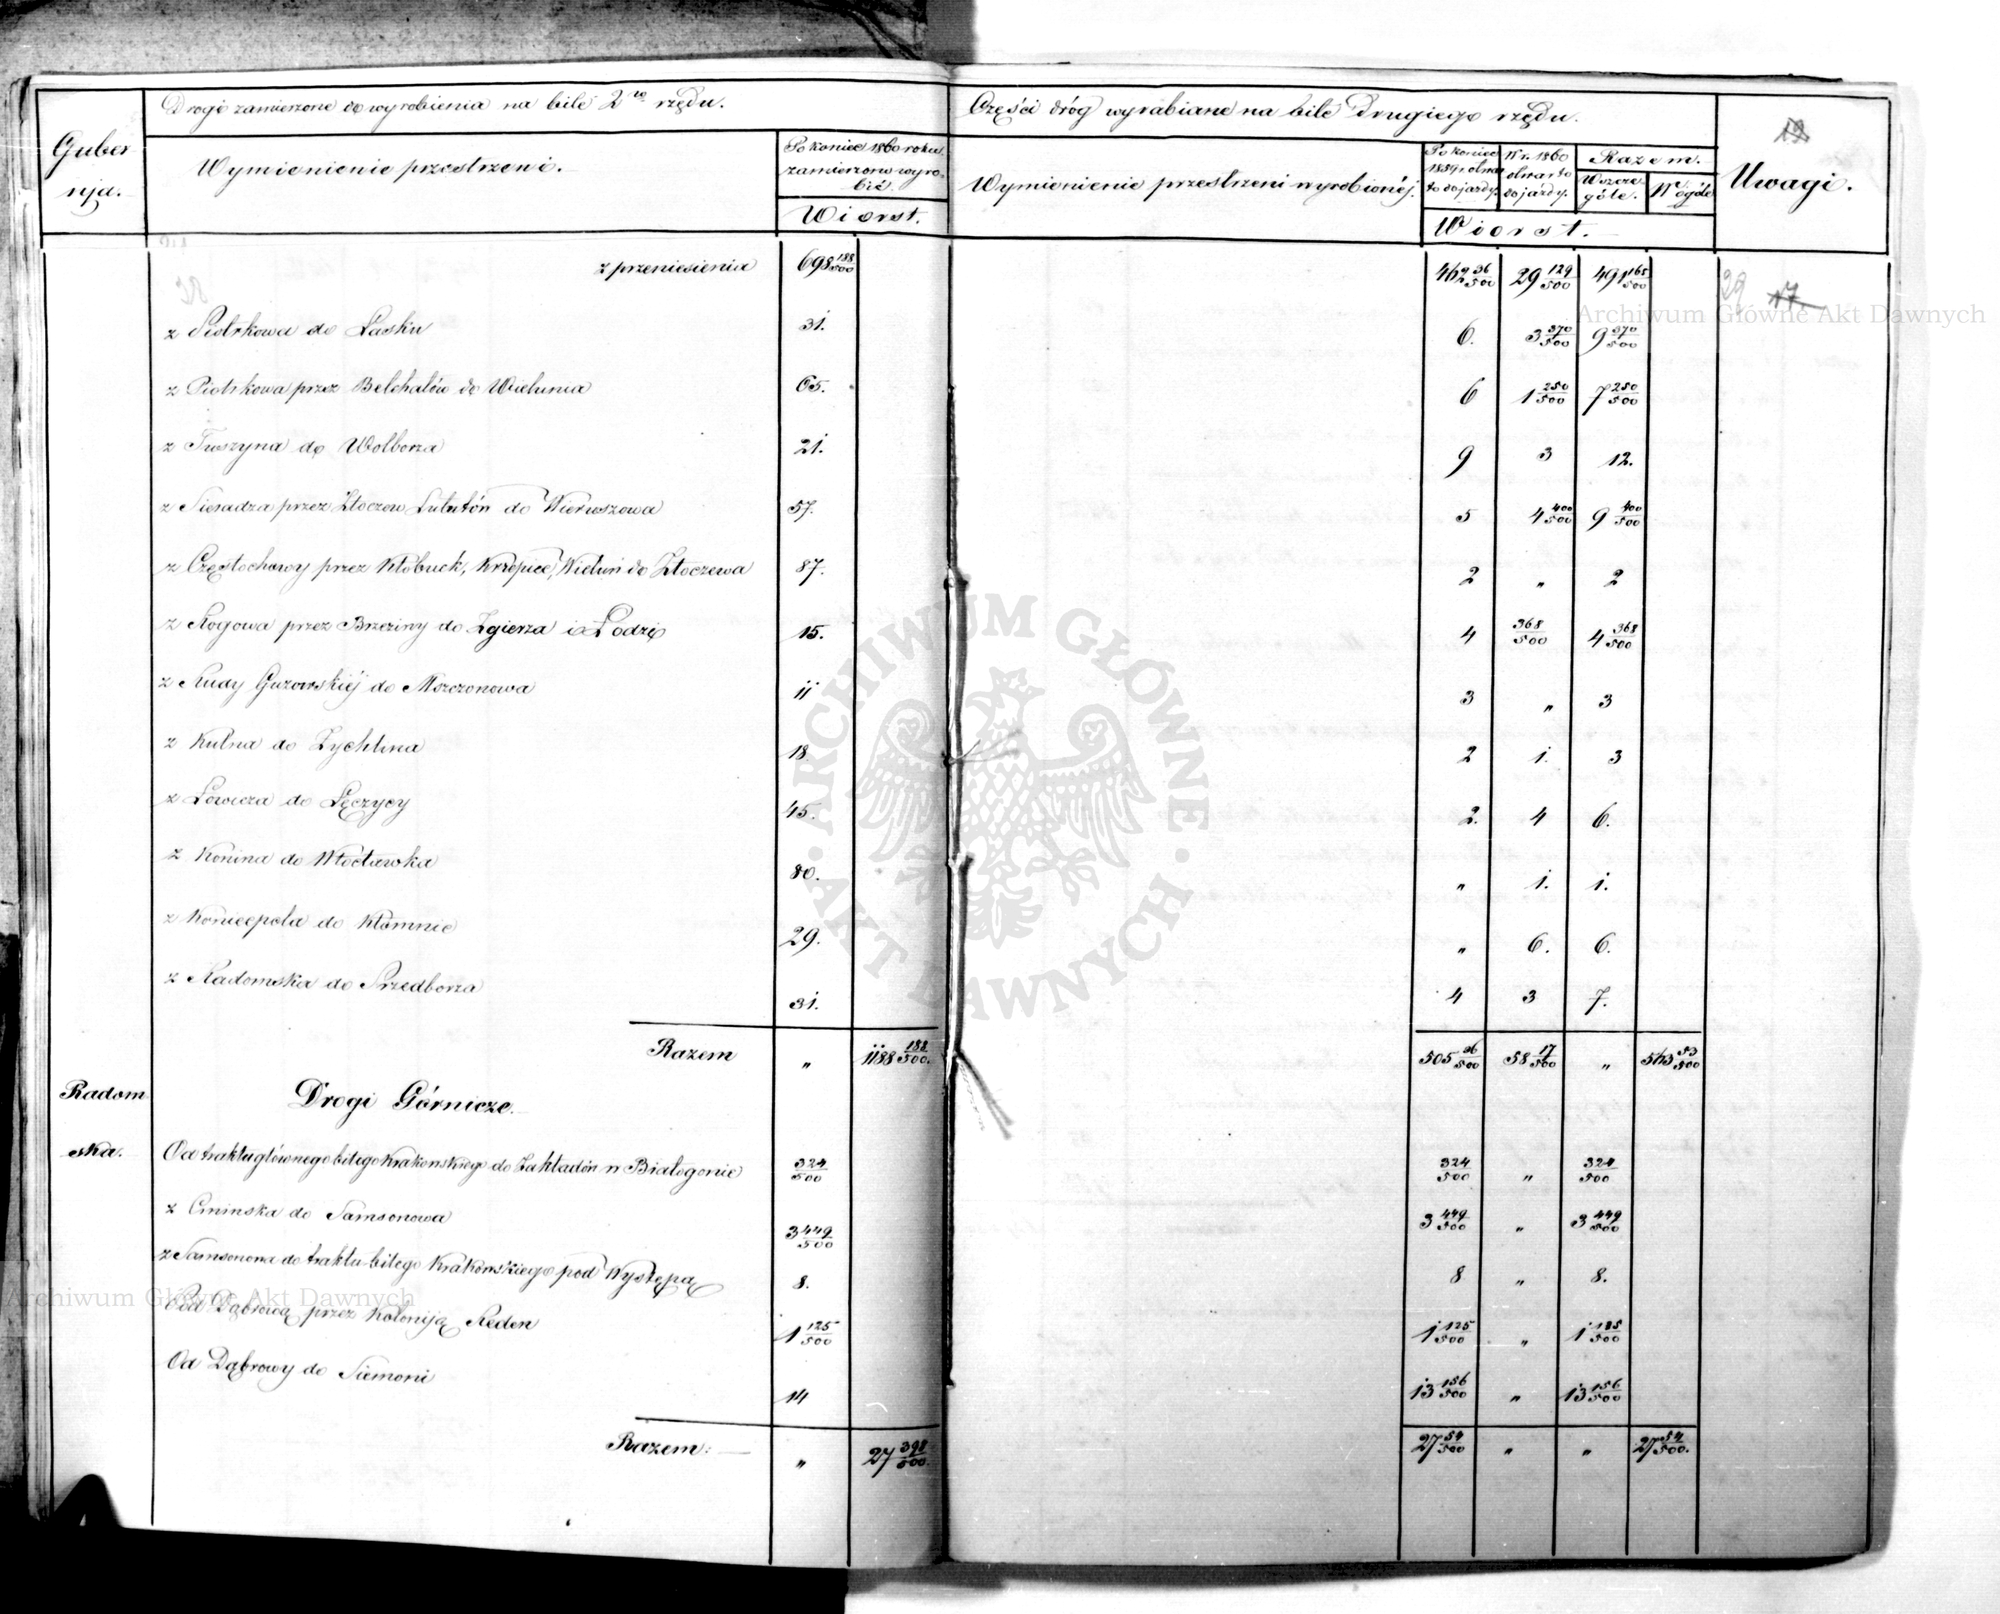 Drogi zamierzone do wyrobienia na bite 2go rzędu.
Części dróg wyrabiane na bite Drugiego rzędu.
19
Guber
nja.
Wymienienie przestrzeni.
Po koniec 1860 roku
zamierzono wyro-
bić.
Wiorst.
Wymienienie przestrzeni wyrobionéj.
Po koniec
1859 r. otwar
to do jazdy.
W r. 1860
otwarto
do jazdy.
Razem.
Wszcze-
góle.
W ogóle
Wiorst.
Uwagi.
z przeniesienia 698 188/500 462 36/500 29 129/500 491 165/500
29 17
z Piotrkowa do Łasku 31. 6. 3 370/500 9 370/500
z Piotrkowa przez Belchatów do Wielunia 65. 6 1 250/500 7 250/500
z Tuszyna do Wolborza 21. 9 3 12.
z Sieradza przez Złoczew Lututów do Wieruszowa 57. 5 4 400/500 9 400/500
z Częstochowy przez Kłobuck, Krzepice, Wieluń do Złoczewa 87. 2 " 2
z Rogowa przez Brzeziny do Zgierza i Łodzi 15. 4 368/500 4 368/500
z Rudy Guzowskiéj do Mszczonowa 11 3 " 3
z Kutna do Żychlina 18 2 1. 3
z Łowicza do Łęczycy 45. 2. 4 6.
z Konina do Włocławka 80. " 1. 1.
z Koniecpola do Kłomnic 29. " 6. 6.
z Radomska do Przedborza 31. 4 3 7.
Razem " 1188 188/500. 505 36/500 58 17/500 " 563 53/500
Radom
ska.
Drogi Górnicze.
Od traktu głównego bitego Krakowskiego do Zakładów w Białogonie 324/500 324/500 " 324/500
z Cminska do Samsonowa 3 449/500 3 449/500 " 3 449/500
z Samsonowa do traktu bitego Krakowskiego pod Występą 8. 8 " 8.
Pod Dąbrową przez Koloniją Reden 1 125/500 1 125/500 " 1 125/500
Od Dąbrowy do Siemoni 14 13 156/500 " 13 156/500
Razem: " 27 398/500. 27 54/500 " " 27 54/500.
Archiwum Główne Akt Dawnych
Archiwum Główne Akt Dawnych
· ARCHIWUM GŁÓWNE · AKT DAWNYCH